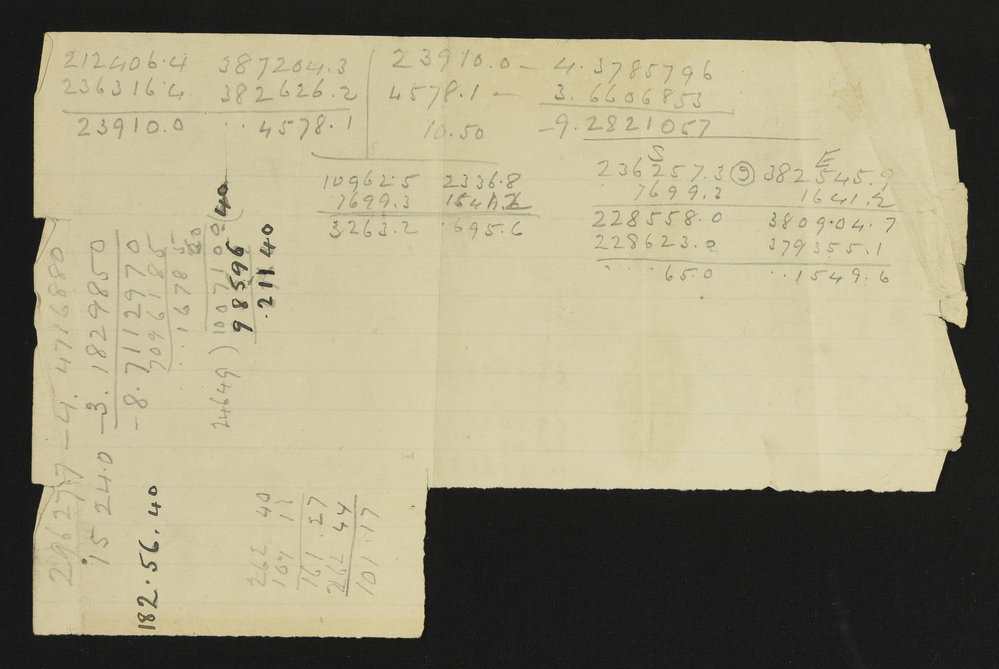 212406.4 387204.3 23910.0 – 4.3785796
236316.4 382626.2 4578.1 – 3.6606853
23910.0 .. 4578.1 10.50 –9.2821057
S E
236257.3 ⑨ 382545.9
7699.3 1641.2
228558.0 380904.7
228623.0 379355.1
... 65.0 .. 1549.6
10962.5 2336.8
7699.3
3263.2 .695.6
29627.7 – 4.4716880
1524.0 – 3.1829850
–8.7112970
7096185
..1678
24649 ) 1007100 ( 40
98596
.21140
182.56.40
262 40
161 13
161.27
262 44
101.17